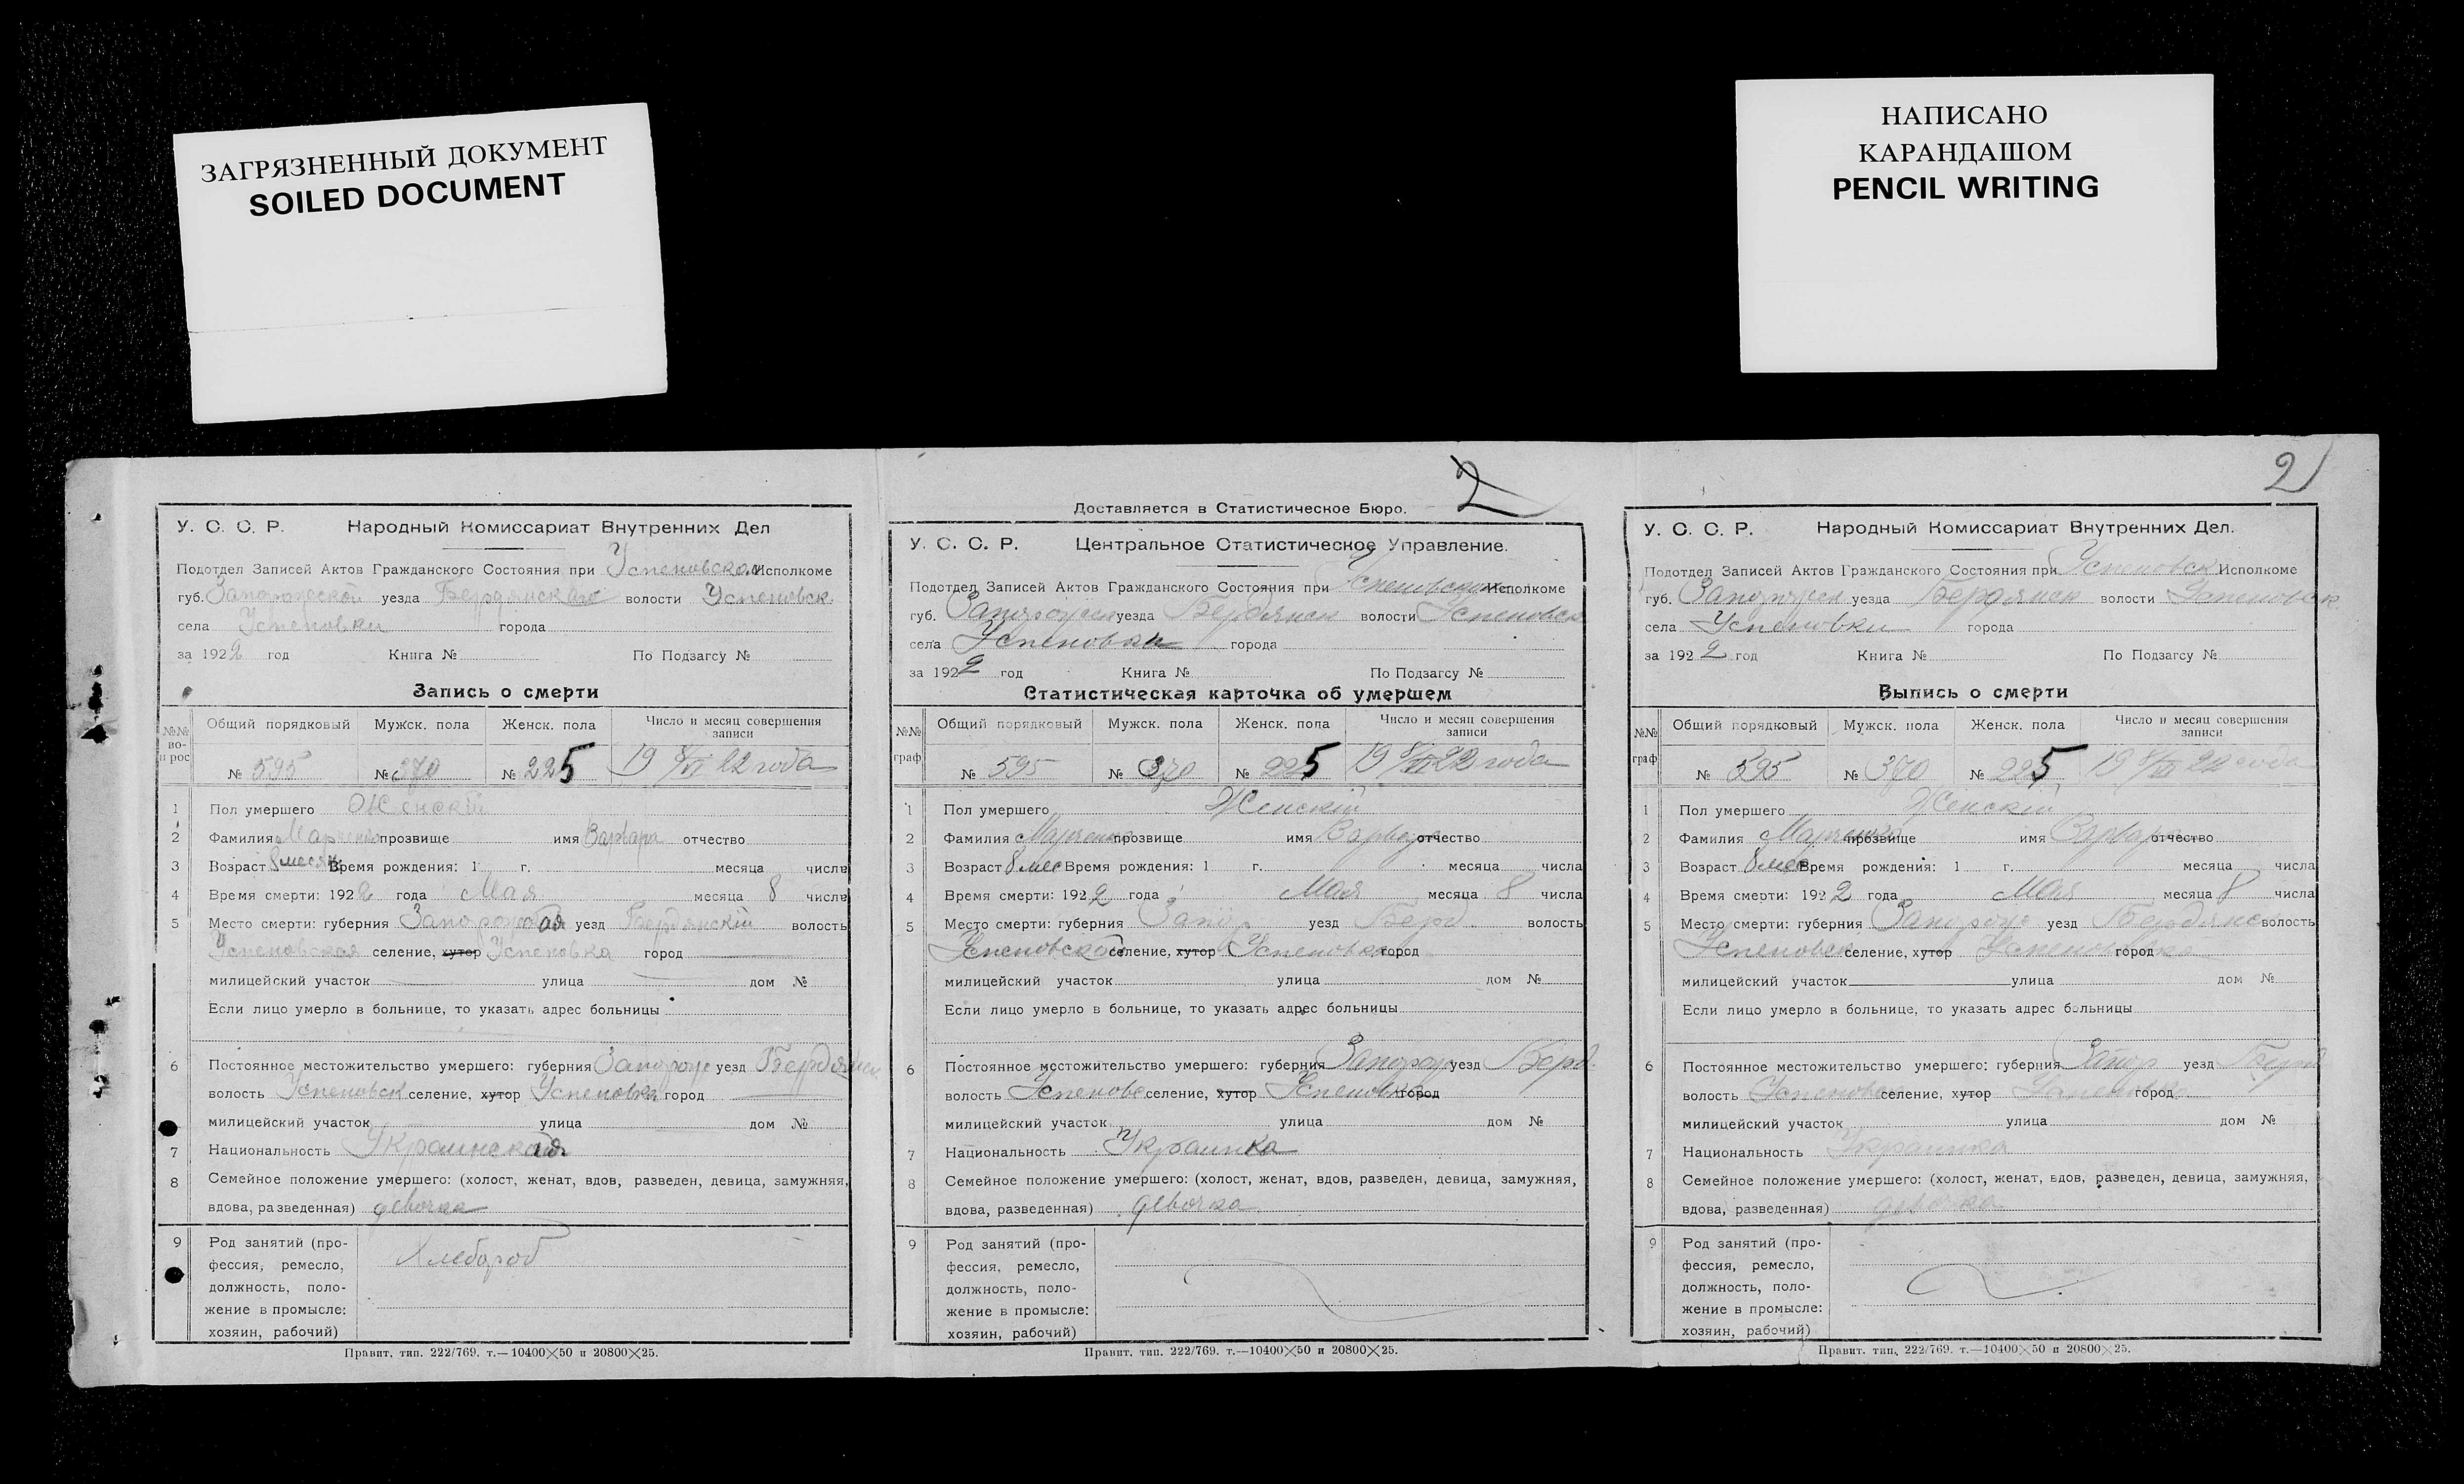 ЗАГРЯЗНЕННЫЙ ДОКУМЕНТ
SOILED DOCUMENT
НАПИСАНО
КАРАНДАШОМ
PENCIL WRITING
У. С. С. Р. Народный Комиссариат Внутренних Дел
Подотдел Записей Актов Гражданского Состояния при Успеновском Исполкоме
губ. Запорожской уезда Бердянского волости Успеновск
села Успеновки города
за 1922 год Книга № По Подзагсу №
Запись о смерти
№№ вопрос Общий порядковый Мужск. пола Женск. пола Число и месяц совершения записи
№ 595 № 370 № 225 19 22 года
1 Пол умершего Женскій
2 Фамилия Марченко прозвище имя Варвара отчество
3 Возраст 8 месяц Время рождения: 1 г. месяца числа
4 Время смерти: 1922 года Мая месяца 8 числа
5 Место смерти: губерния Запорожская уезд Бердянскій волость
Успеновская селение, хутор Успеновка город
милицейский участок улица дом №
Если лицо умерло в больнице, то указать адрес больницы
6 Постоянное местожительство умершего: губерния Запорож уезд Бердянск
волость Успеновск селение, хутор Успеновка город
милицейский участок улица дом №
7 Национальность Украинская
8 Семейное положение умершего: (холост, женат, вдов, разведен, девица, замужняя,
вдова, разведенная) девочка
9 Род занятий (про-
фессия, ремесло,
должность, поло-
жение в промысле:
хозяин, рабочий)
Хлебороб
Правит. тип. 222/769. т.—10400×50 и 20800×25.
2
Доставляется в Статистическое Бюро.
У. С. С. Р. Центральное Статистическое Управление.
Подотдел Записей Актов Гражданского Состояния при Успеновском Исполкоме
губ. Запорожск уезда Бердянск волости Успеновск
села Успеновки города
за 1922 год Книга № По Подзагсу №
Статистическая карточка об умершем
№№ граф Общий порядковый Мужск. пола Женск. пола Число и месяц совершения записи
№ 595 № 370 № 225 19 22 года
1 Пол умершего Женскій
2 Фамилия Марченко прозвище имя Варвара отчество
3 Возраст 8 мес Время рождения: 1 г. месяца числа
4 Время смерти: 1922 года Мая месяца 8 числа
5 Место смерти: губерния Запо уезд Берд. волость
Успеновской селение, хутор Успеновка город
милицейский участок улица дом №
Если лицо умерло в больнице, то указать адрес больницы
6 Постоянное местожительство умершего: губерния Запорож уезд Берд.
волость Успеновс селение, хутор Успеновка город
милицейский участок улица дом №
7 Национальность Украинка
8 Семейное положение умершего: (холост, женат, вдов, разведен, девица, замужняя,
вдова, разведенная) девочка
9 Род занятий (про-
фессия, ремесло,
должность, поло-
жение в промысле:
хозяин, рабочий)
Правит. тип. 222/769. т.—10400×50 и 20800×25.
2
У. С. С. Р. Народный Комиссариат Внутренних Дел.
Подотдел Записей Актов Гражданского Состояния при Успеновск Исполкоме
губ. Запорожск уезда Бердянск волости Успеновск
села Успеновки города
за 1922 год Книга № По Подзагсу №
Выпись о смерти
№№ граф Общий порядковый Мужск. пола Женск. пола Число и месяц совершения записи
№ 595 № 370 № 225 19 22 года
1 Пол умершего Женскій
2 Фамилия Марченко прозвище имя Варвара отчество
3 Возраст 8 мес Время рождения: 1 г. месяца числа
4 Время смерти: 1922 года Мая месяца 8 числа
5 Место смерти: губерния Запорож уезд Бердянс волость
Успеновск селение, хутор Успеновка город
милицейский участок улица дом №
Если лицо умерло в больнице, то указать адрес больницы
6 Постоянное местожительство умершего: губерния Запор уезд Берд
волость Успеновск селение, хутор Успеновка город
милицейский участок улица дом №
7 Национальность Украинка
8 Семейное положение умершего: (холост, женат, вдов, разведен, девица, замужняя,
вдова, разведенная) девочка
9 Род занятий (про-
фессия, ремесло,
должность, поло-
жение в промысле:
хозяин, рабочий)
Правит. тип. 222/769. т.—10400×50 и 20800×25.